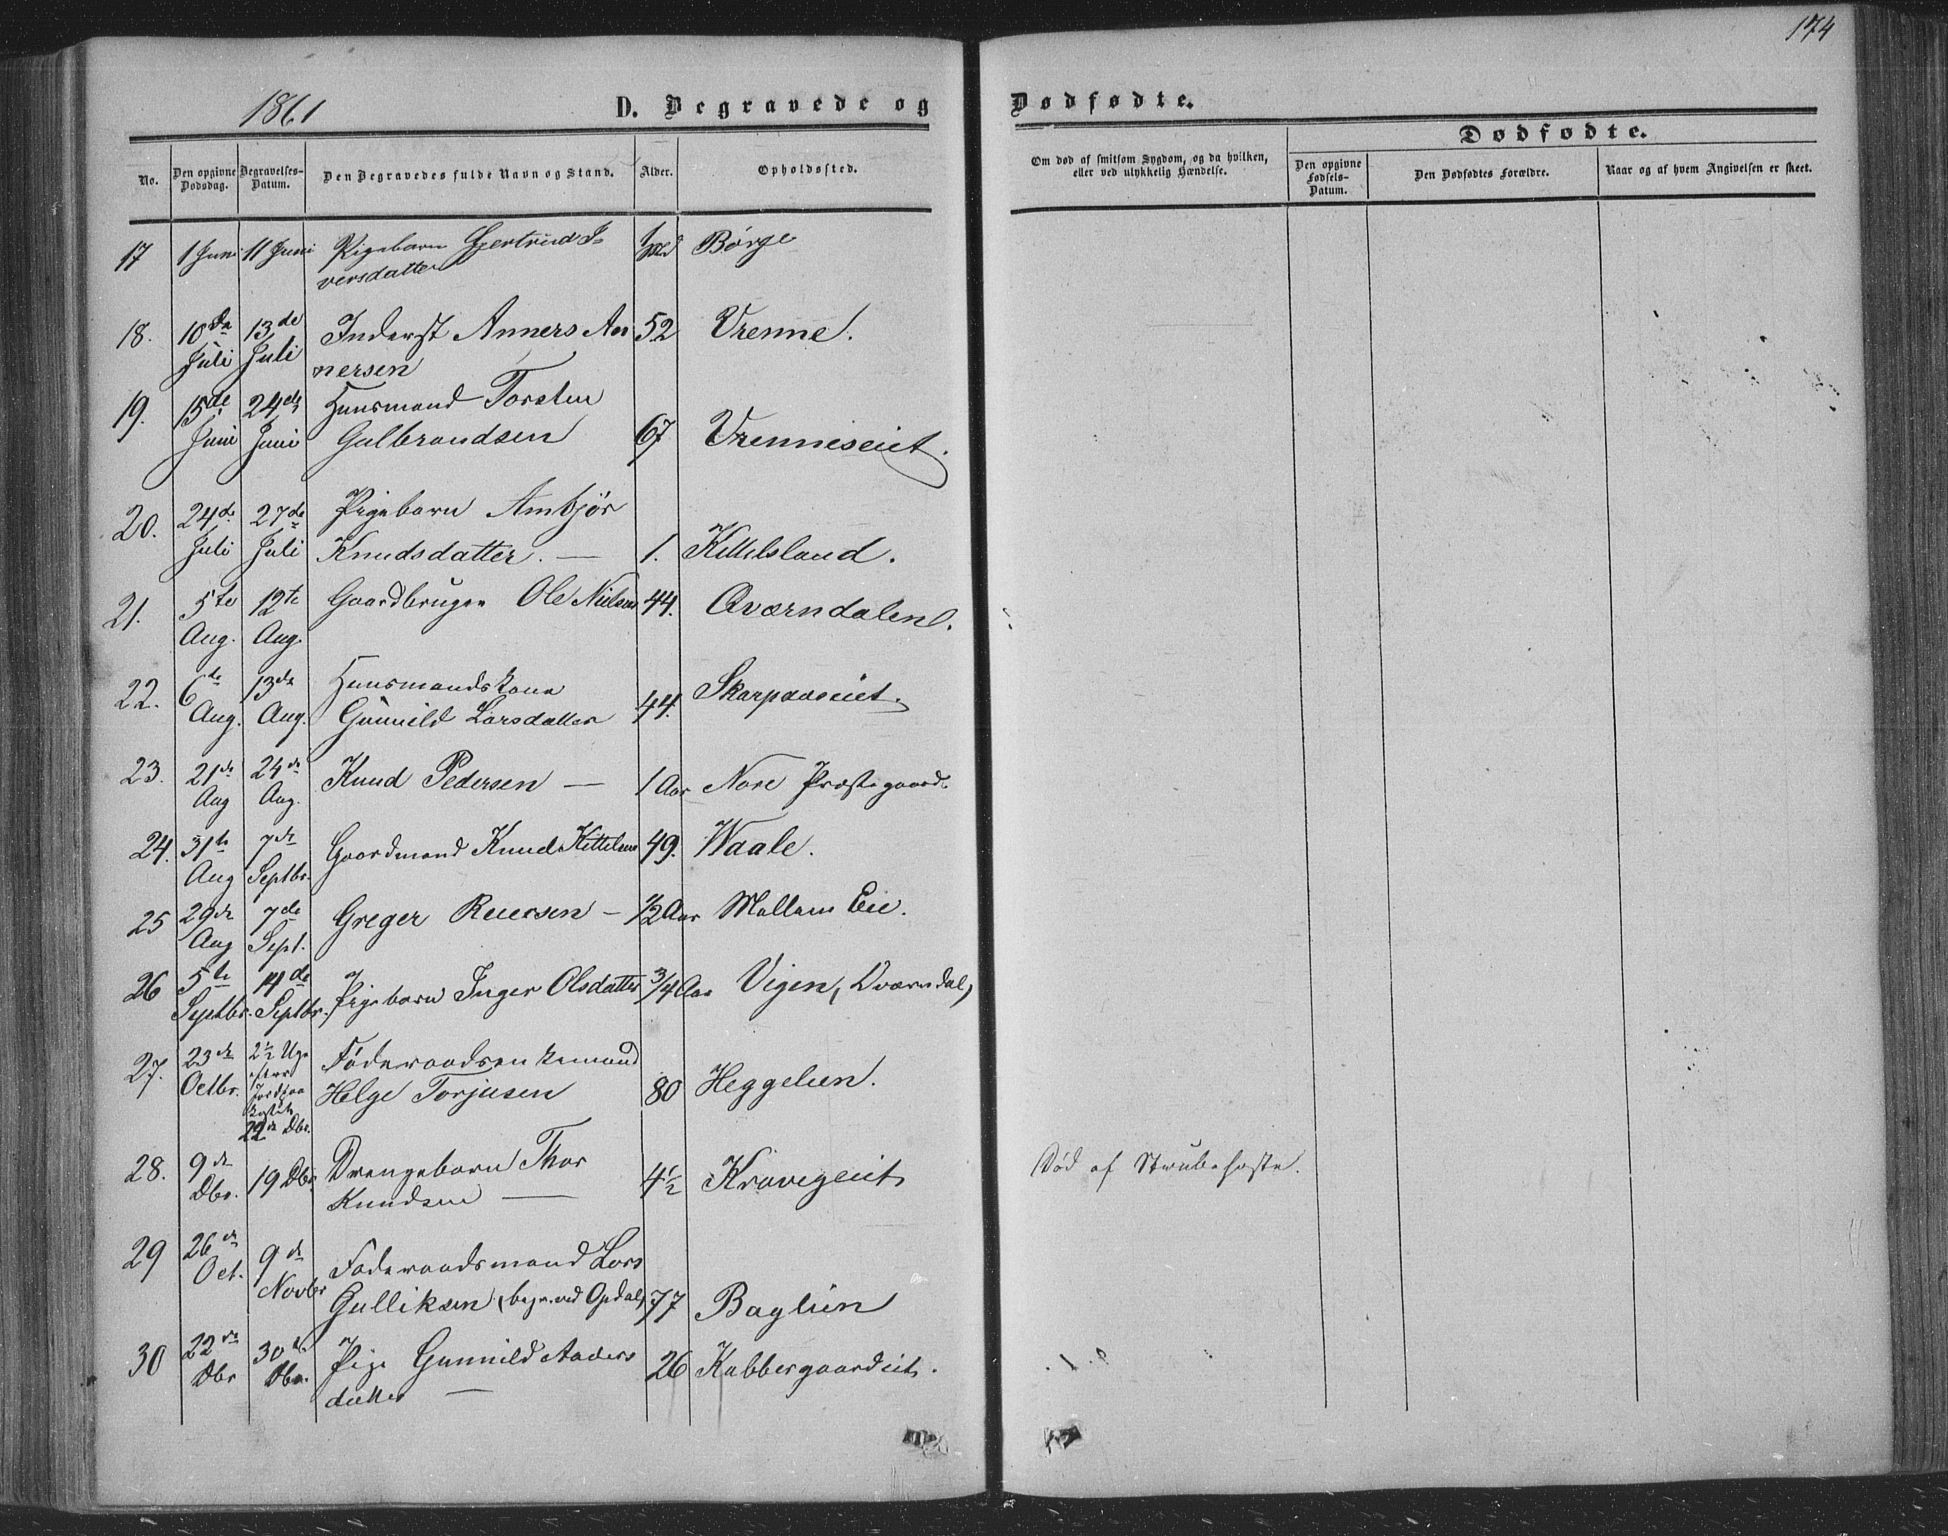 174
1861
D. Begravede og Dødfødte.
No. | Den opgivne Dødsdag. | Begravelses-Datum. | Den Begravedes fulde Navn og Stand. | Alder. | Opholdssted. | Om død af smitsom Sygdom, og da hvilken, eller ved ulykkelig Hændelse. | Dødfødte. | Den opgivne Fødsels-Datum. | Den Dødfødtes Forældre. | Naar og af hvem Angivelsen er skeet.
17 | 1 Juni | 11 Juni | Pigebarn Gjertrud I-
versdatter | Børge
18. | 10de Juli | 13de Juli | Inderst Anners An
nersen | 52 | Vrenne.
19. | 15de Juni | 24de Juni | Huusmand Torsten
Gulbrandsen | 67 | Vrenneseiet.
20. | 24de Juli | 27de Juli | Pigebarn Ambjør
Knudsdatter. — | 1. | Kittilsland.
21. | 5te Aug. | 12te Aug. | Gaardbruger Ole Nielsen | 44. | Qværndalen.
22. | 6te Aug. | 13de Aug. | Huusmandskone
Gunnild Larsdatter | 44. | Skarpaaseiet.
23. | 21de Aug | 24de Aug. | Knud Pedersen — | 1 Aar | Nore Præstegaard.
24. | 31te Aug | 7de Septbr. | Gaardmand Knud Kittelsen | 49. | Waale.
25 | 29de Aug | 7de Sept. | Greger Reiersen — | 1/2 Aar | Mellem Eie.
26 | 5te Septbr. | 14de Septbr. | Pigebarn Inger Olsdatter | 3/4 Aar | Vigen, (Qværndal)
27. | 23de Octbr. | 2½ Uge efter Jordpaakastelse 22de Dbr. | Føderaadsenkemand
Helge Torjusen | 80 | Heggelien.
28. | 9de Dbr. | 19 Dbr. | Drengebarn Thor
Knudsen — | 4½ | Kravigeiet | Død af Strubehoste.
29 | 26de Oct. | 9de Novbr | Føderaadsmand Lars
Gulliksen (begr. ved Opdal) | 77 | Baglien
30 | 22de Dbr | 30te Dbr. | Pige Gunnild Anders
datter — | 26 | Kabbergaardeiet.